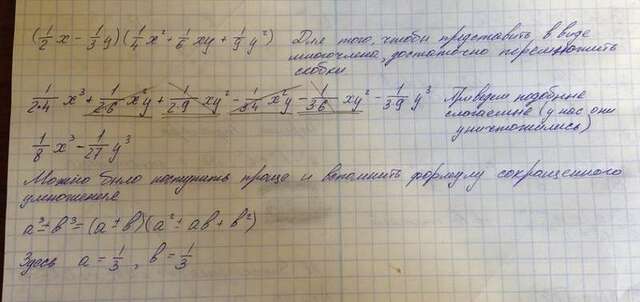 (1/2 x - 1/3 y)(1/4 x² + 1/6 xy + 1/9 y²) Для того, чтобы представить в виде
многочлена, достаточно перемножить
скобки
1/2·4 x³ + 1/2·6 x²y + 1/2·9 xy² - 1/3·4 x²y - 1/3·6 xy² - 1/3·9 y³ Приведем подобные
слагаемые (у нас они
уничтожились)
1/8 x³ - 1/27 y³
Можно было поступить проще и вспомнить формулу сокращенного
умножения
a³ ± b³ = (a ± b)(a² ± ab + b²)
Здесь a = 1/3, b = 1/3